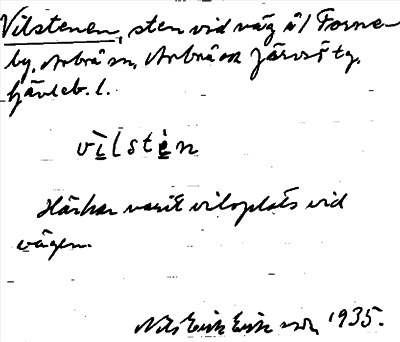 Vilstenen, sten vid väg t/ Forne-
by, Arbrå sn, Arbrå o Järvsö tg,
Gävleb. l.
vilstèn
Här har varit viloplats vid
vägen.
Nils Erik Eriksson, 1935.